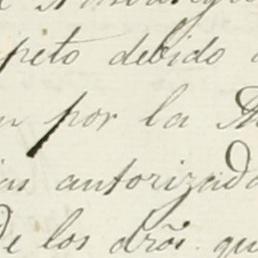 peto debido
por la
autorizada
De los drõs. qu